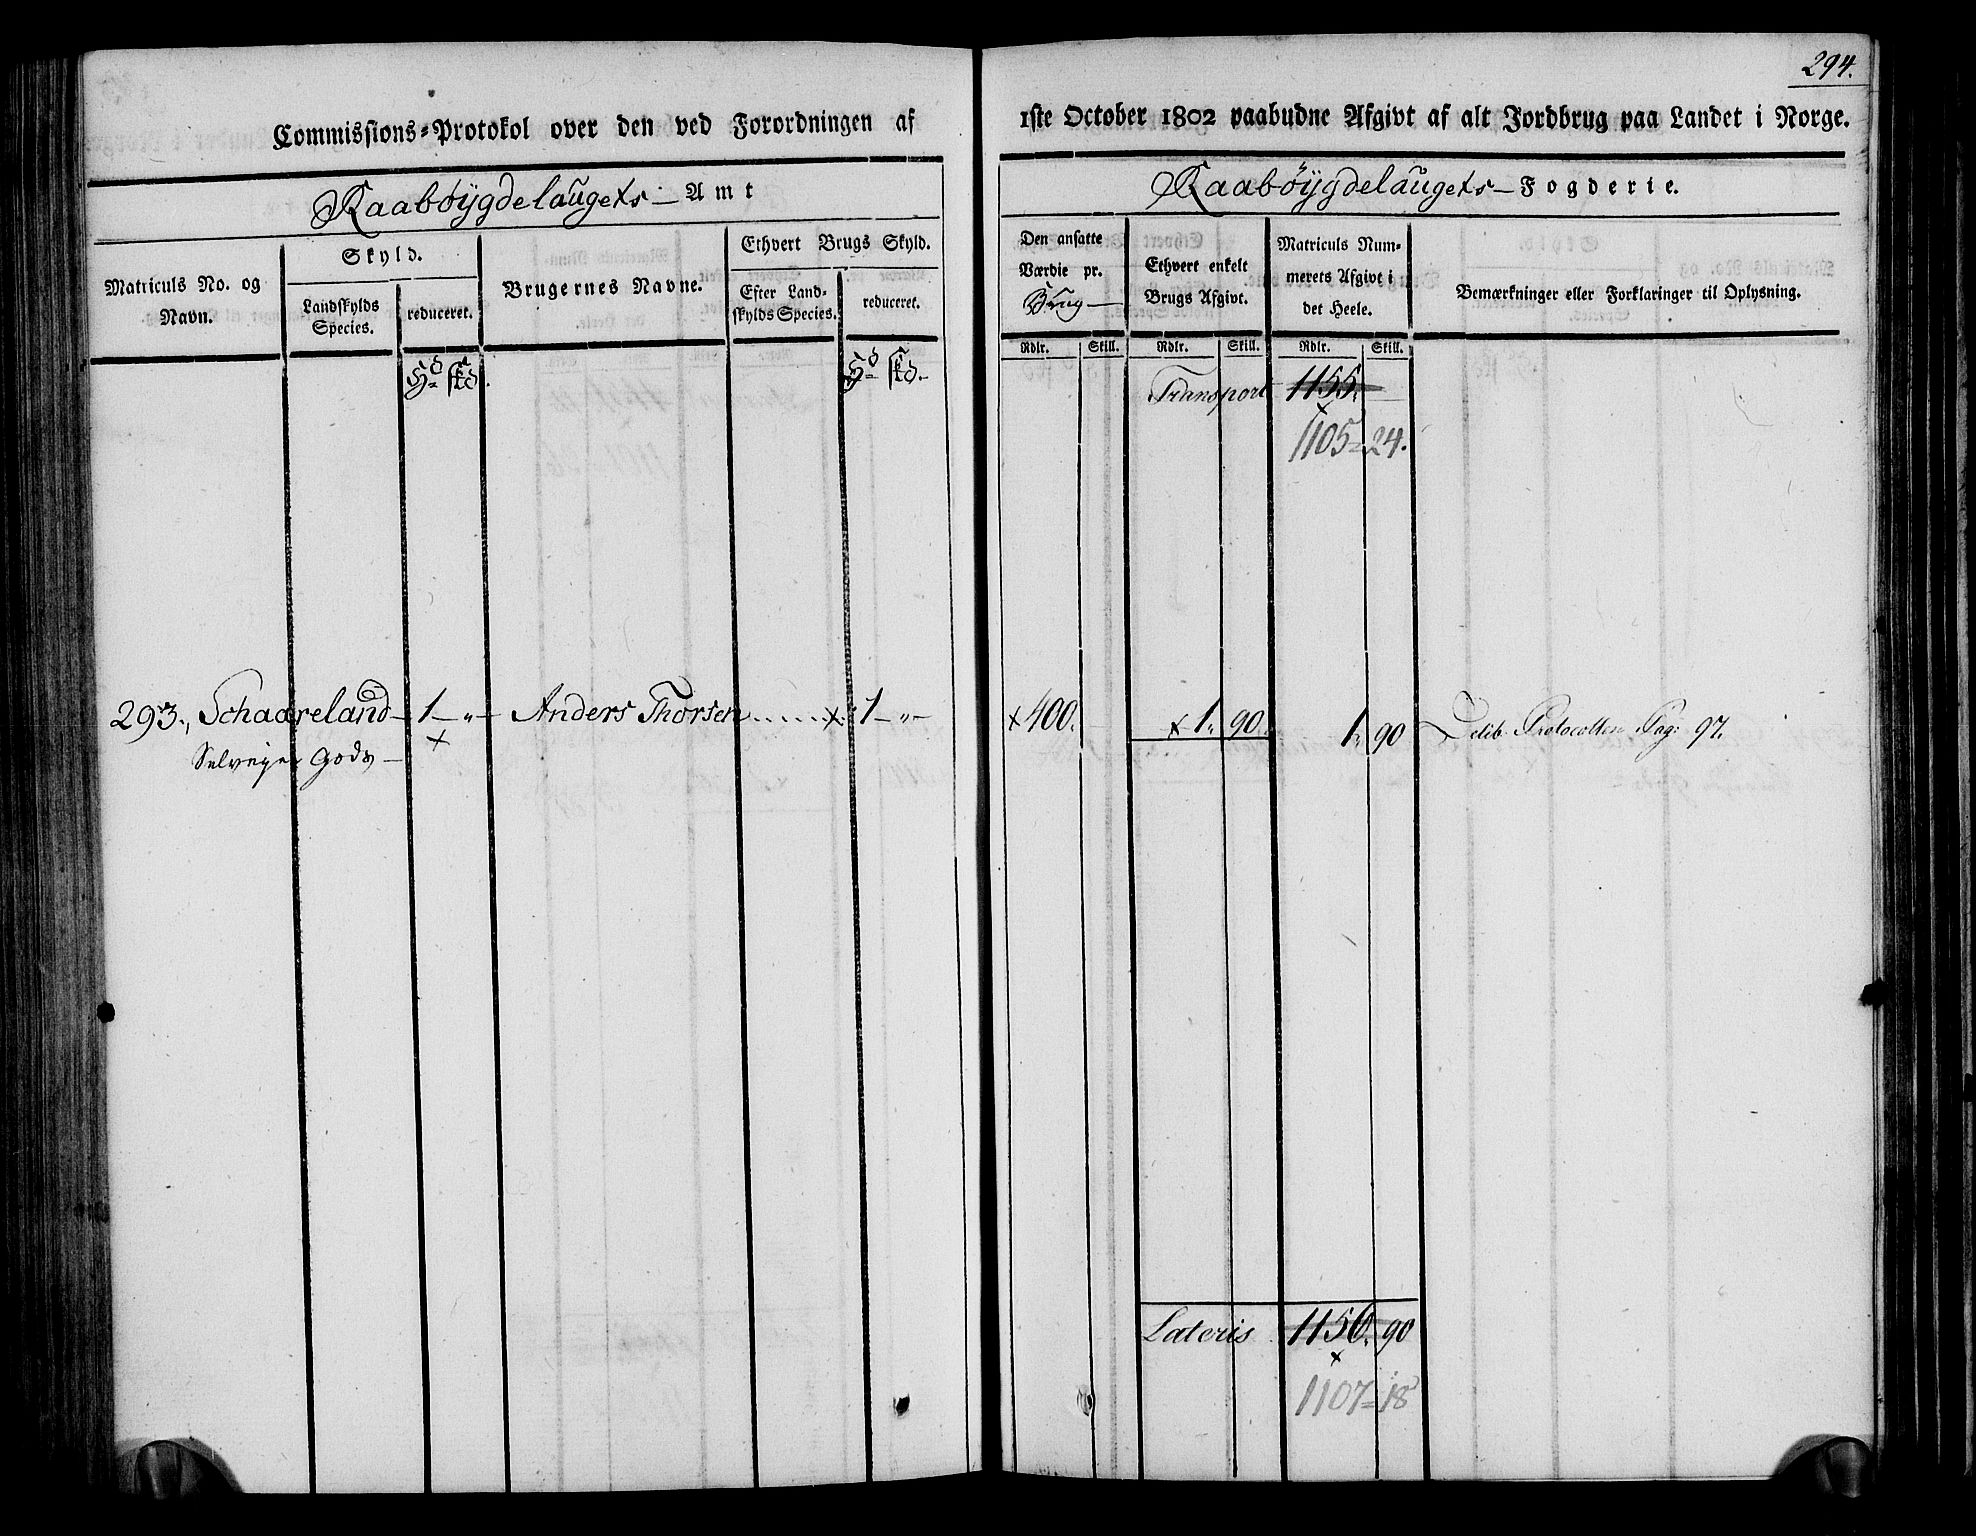 294.
Commissions-Protokol over den ved Forordningen af 1ste October 1802 paabudne Afgivt af alt Jordbrug paa Landet i Norge.
Raabøygdelaugets Amt
Raabøygdelaugets Fogderie.
Matriculs No. og Navn.
Skyld.
Landskylds Species.
reduceret.
Brugernes Navne.
Ethvert Brugs Skyld.
Efter Landskylds Species.
reduceret.
Den ansatte Værdie pr. Brug
Ethvert enkelt Brugs Afgivt.
Matriculs Nummerets Afgivt i det Heele.
Bemærkninger eller Forklaringer til Oplysning.
Rdlr. Skill. Rdlr. Skill. Rdlr. Skill.
Hd skd. Hd skd.
Transport 1155.
1105 = 24.
293., Schaareland 1 - " - Anders Thorsen x 1 - " - x 400. x 1. 90. 1. 90 Delib. Protocollen Pag: 97.
Selveyer Gods x
Lateris 1156. 90
x
1107 = 18